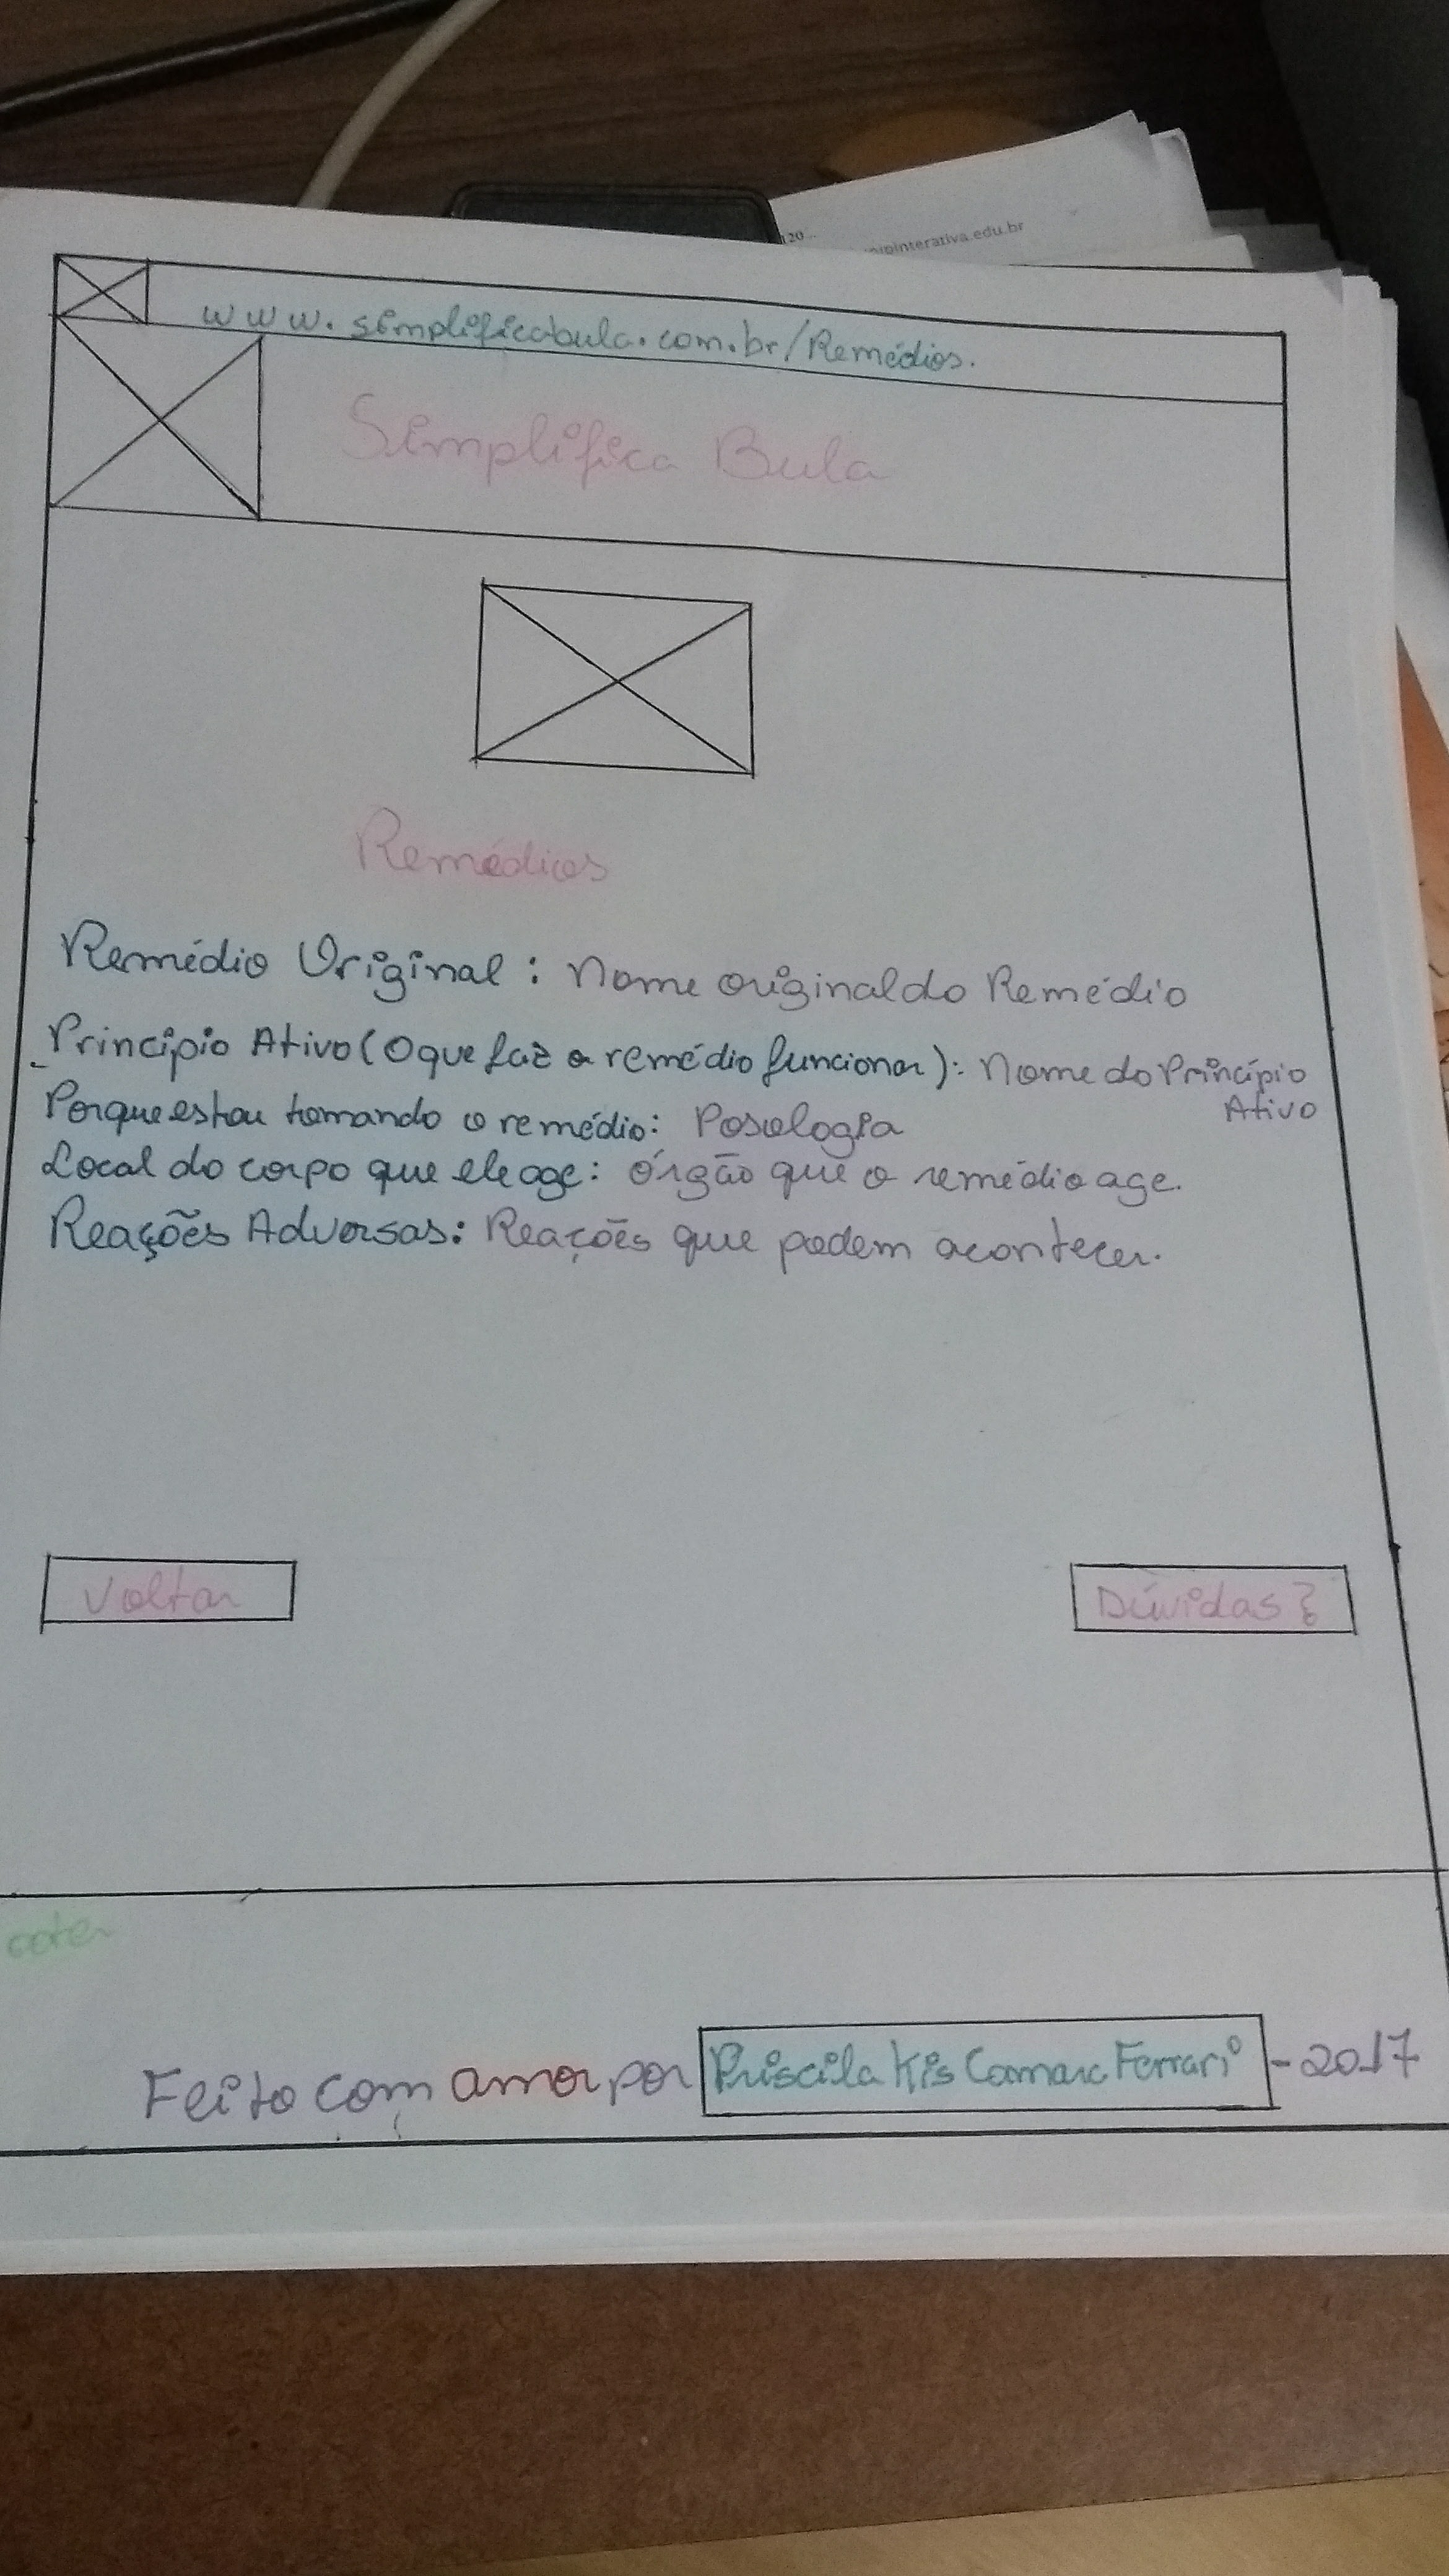 120...
nipinterativa.edu.br
www.simplificabula.com.br/Remédios.
Simplifica Bula
Remédios
Remédio Original: Nome original do Remédio
Princípio Ativo (O que faz o remédio funcionar): Nome do Princípio
Ativo
Porque estou tomando o remédio: Posologia
Local do corpo que ele age: órgão que o remédio age.
Reações Adversas: Reações que podem acontecer.
Voltar
Dúvidas?
ooter
Feito com amor por Priscila Kis Camara Ferrari - 2017